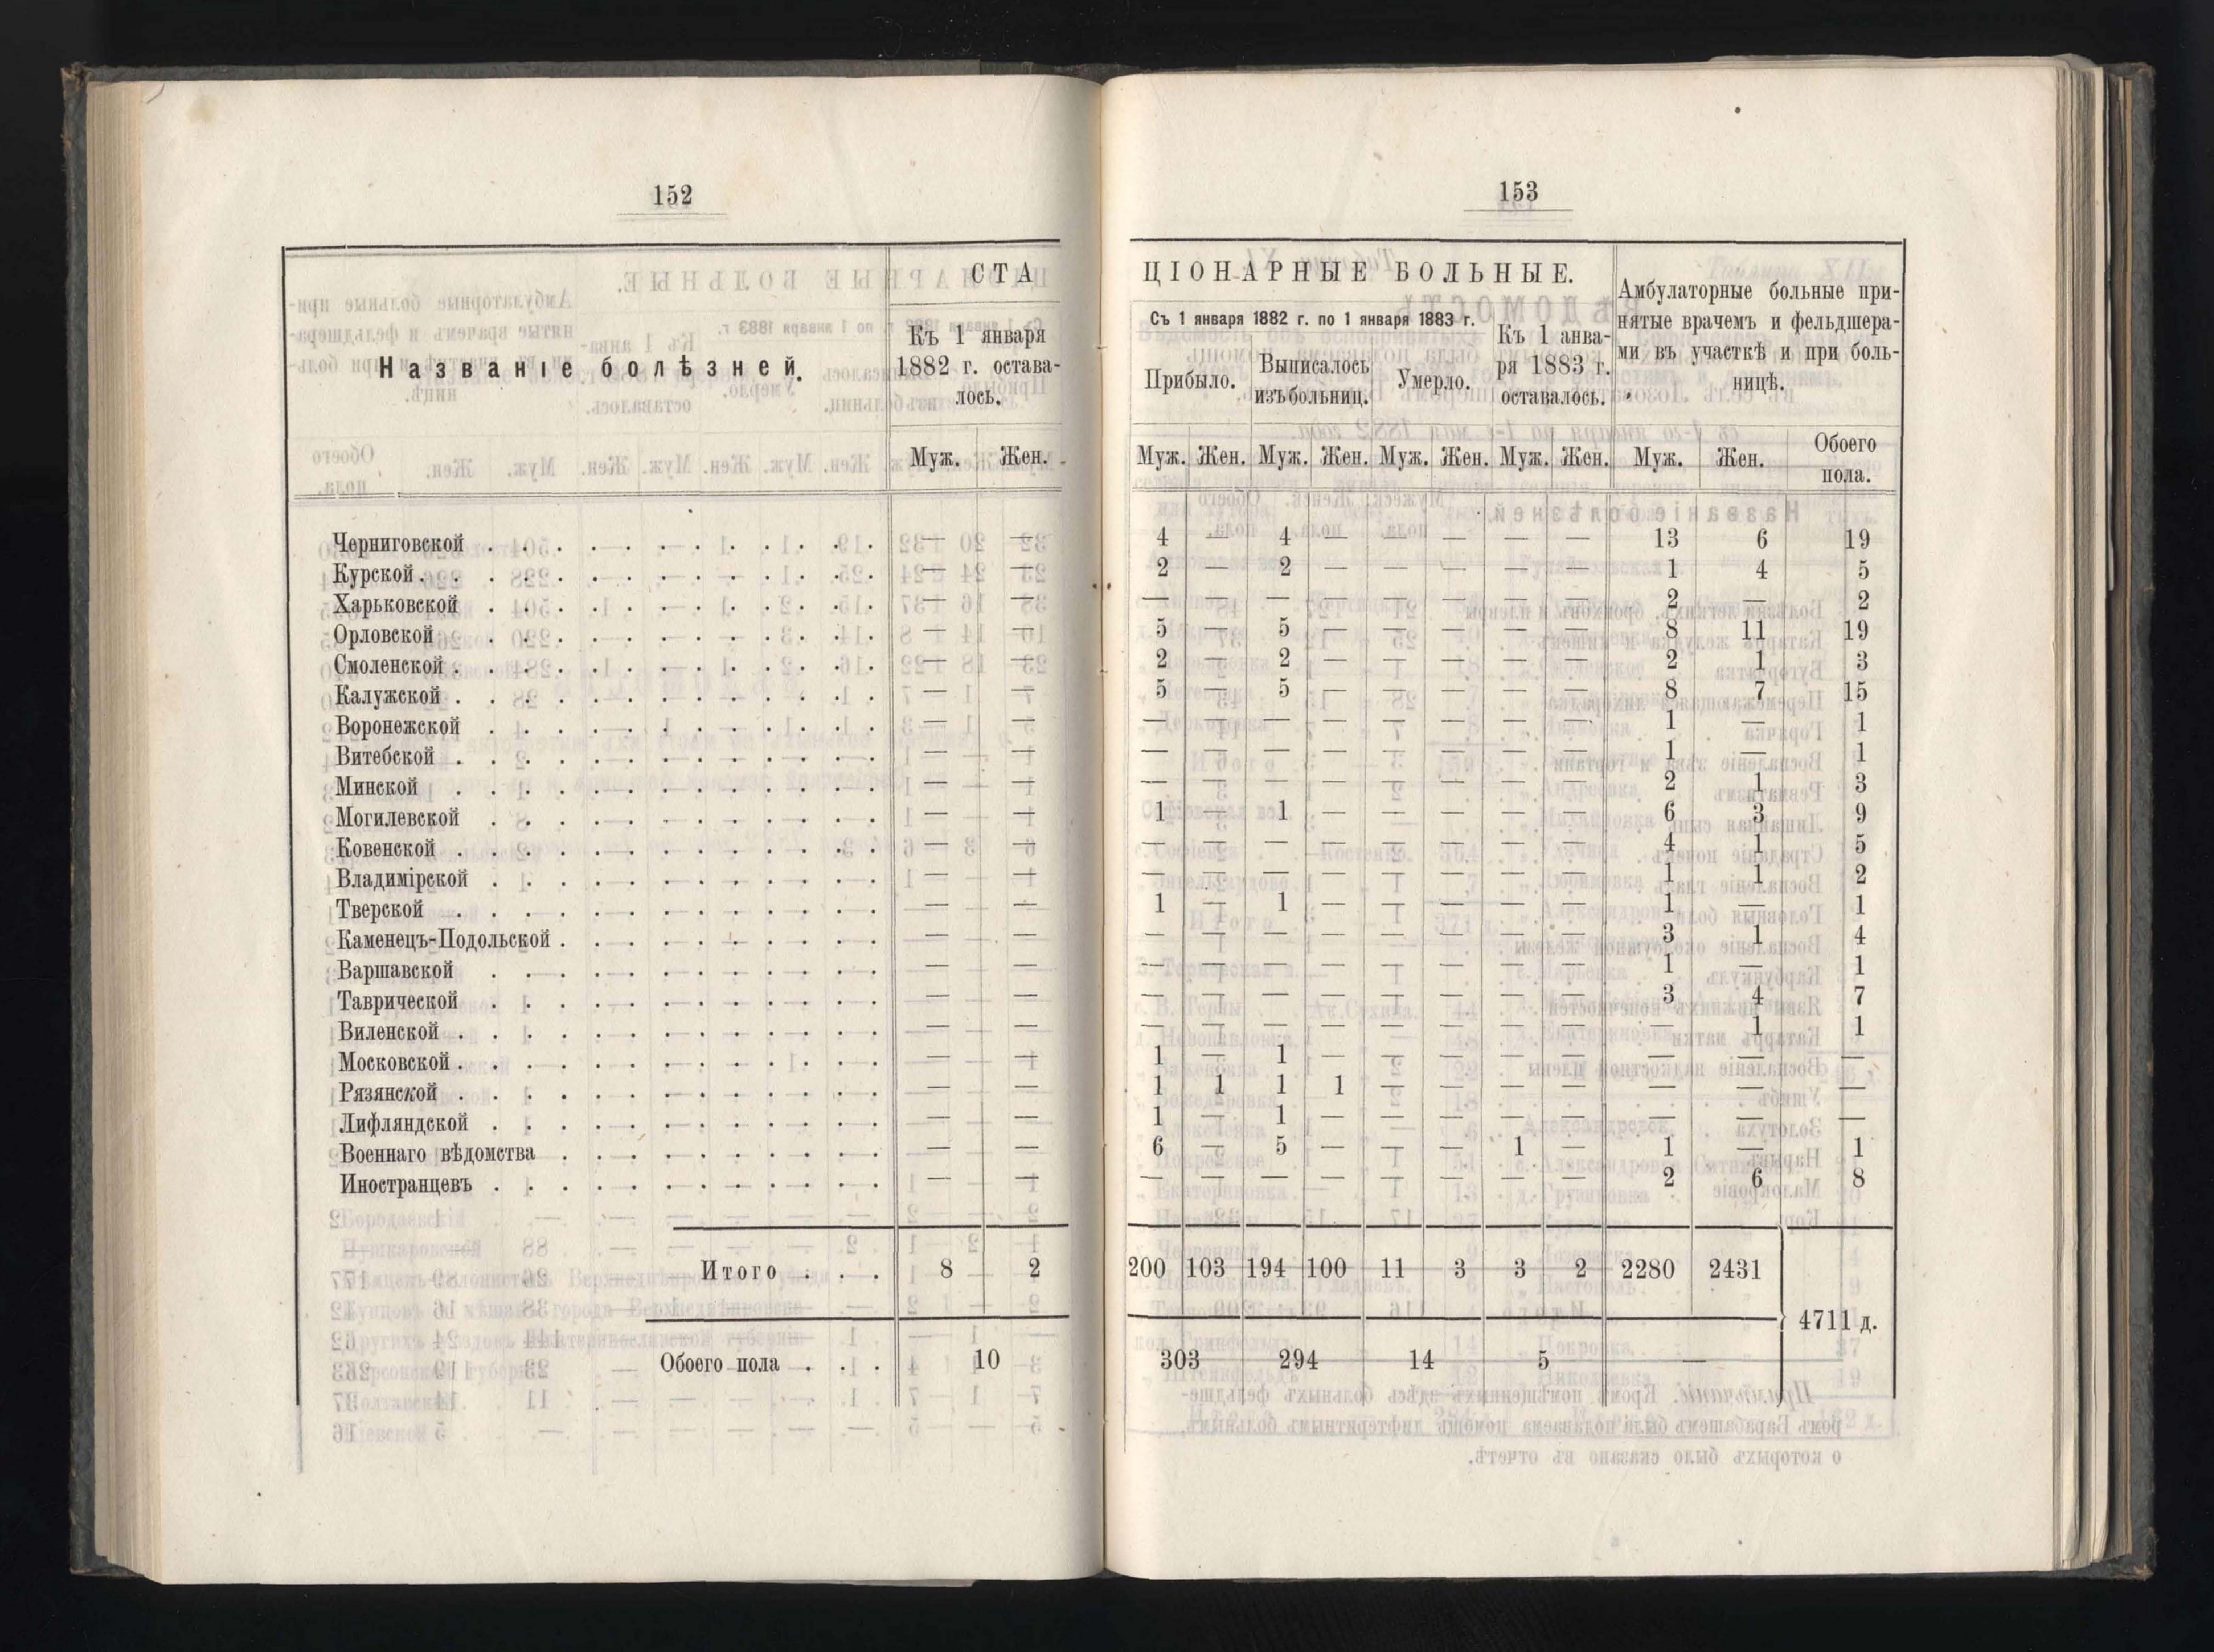 152
СТА
Названіе болѣзней.
Къ 1 января
1882 г. остава-
лось.
Муж. Жен.
Черниговской . . . . . . . . . . . . — —
Курской . . . . . . . . . . . . . — —
Харьковской . . . . . . . . . . . . — —
Орловской . . . . . . . . . . . . — —
Смоленской . . . . . . . . . . . . . — —
Калужской . . . . . . . . . . . . . — —
Воронежской . . . . . . . . . . . . — —
Витебской . . . . . . . . . . . . . — —
Минской . . . . . . . . . . . . . — —
Могилевской . . . . . . . . . . . . — —
Ковенской . . . . . . . . . . . . . — —
Владимірской . . . . . . . . . . . . — —
Тверской . . . . . . . . . . . . . — —
Каменецъ-Подольской . . . . . . . . . . — —
Варшавской . . . . . . . . . . . . — —
Таврической . . . . . . . . . . . . — —
Виленской . . . . . . . . . . . . . — —
Московской . . . . . . . . . . . . . — —
Рязянской . . . . . . . . . . . . . — —
Лифляндской . . . . . . . . . . . . — —
Военнаго вѣдомства . . . . . . . . . . — —
Иностранцевъ . . . . . . . . . . . . — —
Итого . . . 8 2
Обоего пола . . . 10
153
ЦІОНАРНЫЕ БОЛЬНЫЕ.
Съ 1 января 1882 г. по 1 января 1883 г.
Прибыло.
Выписалось
изъ больниц.
Умерло.
Къ 1 анва-
ря 1883 г.
оставалось.
Амбулаторные больные при-
нятые врачемъ и фельдшера-
ми въ участкѣ и при боль-
ницѣ.
Муж. Жен. Муж. Жен. Муж. Жен. Муж. Жен. Муж. Жен. Обоего
пола.
4 — 4 — — — — — 13 6 19
2 — 2 — — — — — 1 4 5
— — — — — — — — 2 — 2
5 — 5 — — — — — 8 11 19
2 — 2 — — — — — 2 1 3
5 — 5 — — — — — 8 7 15
— — — — — — — — 1 — 1
— — — — — — — — 1 — 1
— — — — — — — — 2 1 3
1 — 1 — — — — — 6 3 9
— — — — — — — — 4 1 5
— — — — — — — — 1 1 2
1 — 1 — — — — — 1 — 1
— — — — — — — — 3 1 4
— — — — — — — — 1 — 1
— — — — — — — — 3 4 7
— — — — — — — — — 1 1
1 — 1 — — — — — — — —
1 1 1 1 — — — — — — —
1 — 1 — — — — — — — —
6 — 5 — — — 1 — 1 — 1
— — — — — — — — 2 6 8
200 103 194 100 11 3 3 2 2280 2431
4711 д.
303 294 14 5 —